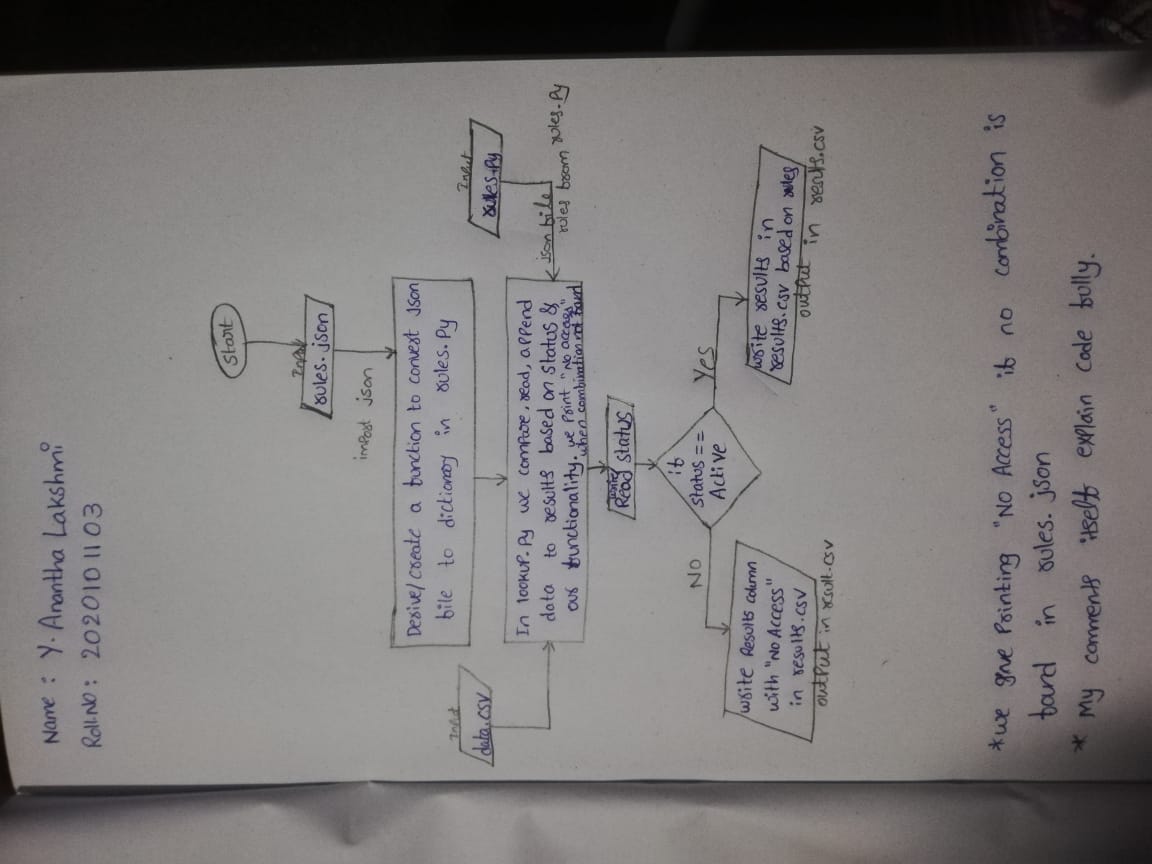 Name : Y. Anantha Lakshmi
Roll.No : 2020101103
Start
Input
rules.json
import json
Derive/create a function to convert json
file to dictionary in rules.py
Input
data.csv
Input
rules.py
json file
rules from rules.py
In lookup.py we compare, read, append
data to results based on status &
our functionality. we print "No access"
when combination not found
Read status
if
status ==
Active
NO
Yes
write Results column
with "No Access"
in results.csv
output in result.csv
write results in
results.csv based on rules
output in results.csv
*we are printing "No Access" if no combination is
found in rules.json
* My comments itself explain code fully.